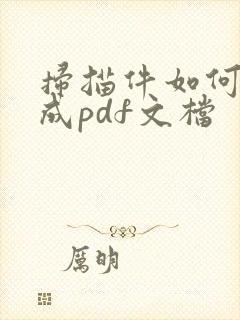 掃描件如何
成pdf文檔
厲明